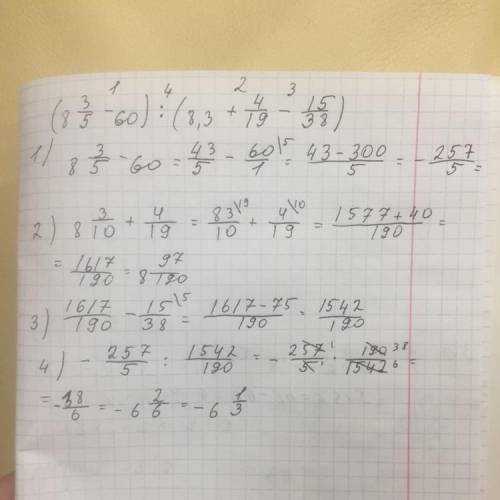 1 4 2 3
(8 3/5 - 60) : (8,3 + 4/19 - 15/38)
1) 8 3/5 - 60 = 43/5 - 60/1 \5 = (43-300)/5 = - 257/5 =
2) 8 3/10 + 4/19 = 83/10 \19 + 4/19 \10 = (1577+40)/190 =
= 1617/190 = 8 97/190
3) 1617/190 - 15/38 \5 = (1617-75)/190 = 1542/190
4) - 257/5 : 1542/190 = - 257 1/5 1 : 190 38/1542 6 =
= - 38/6 = - 6 2/6 = - 6 1/3